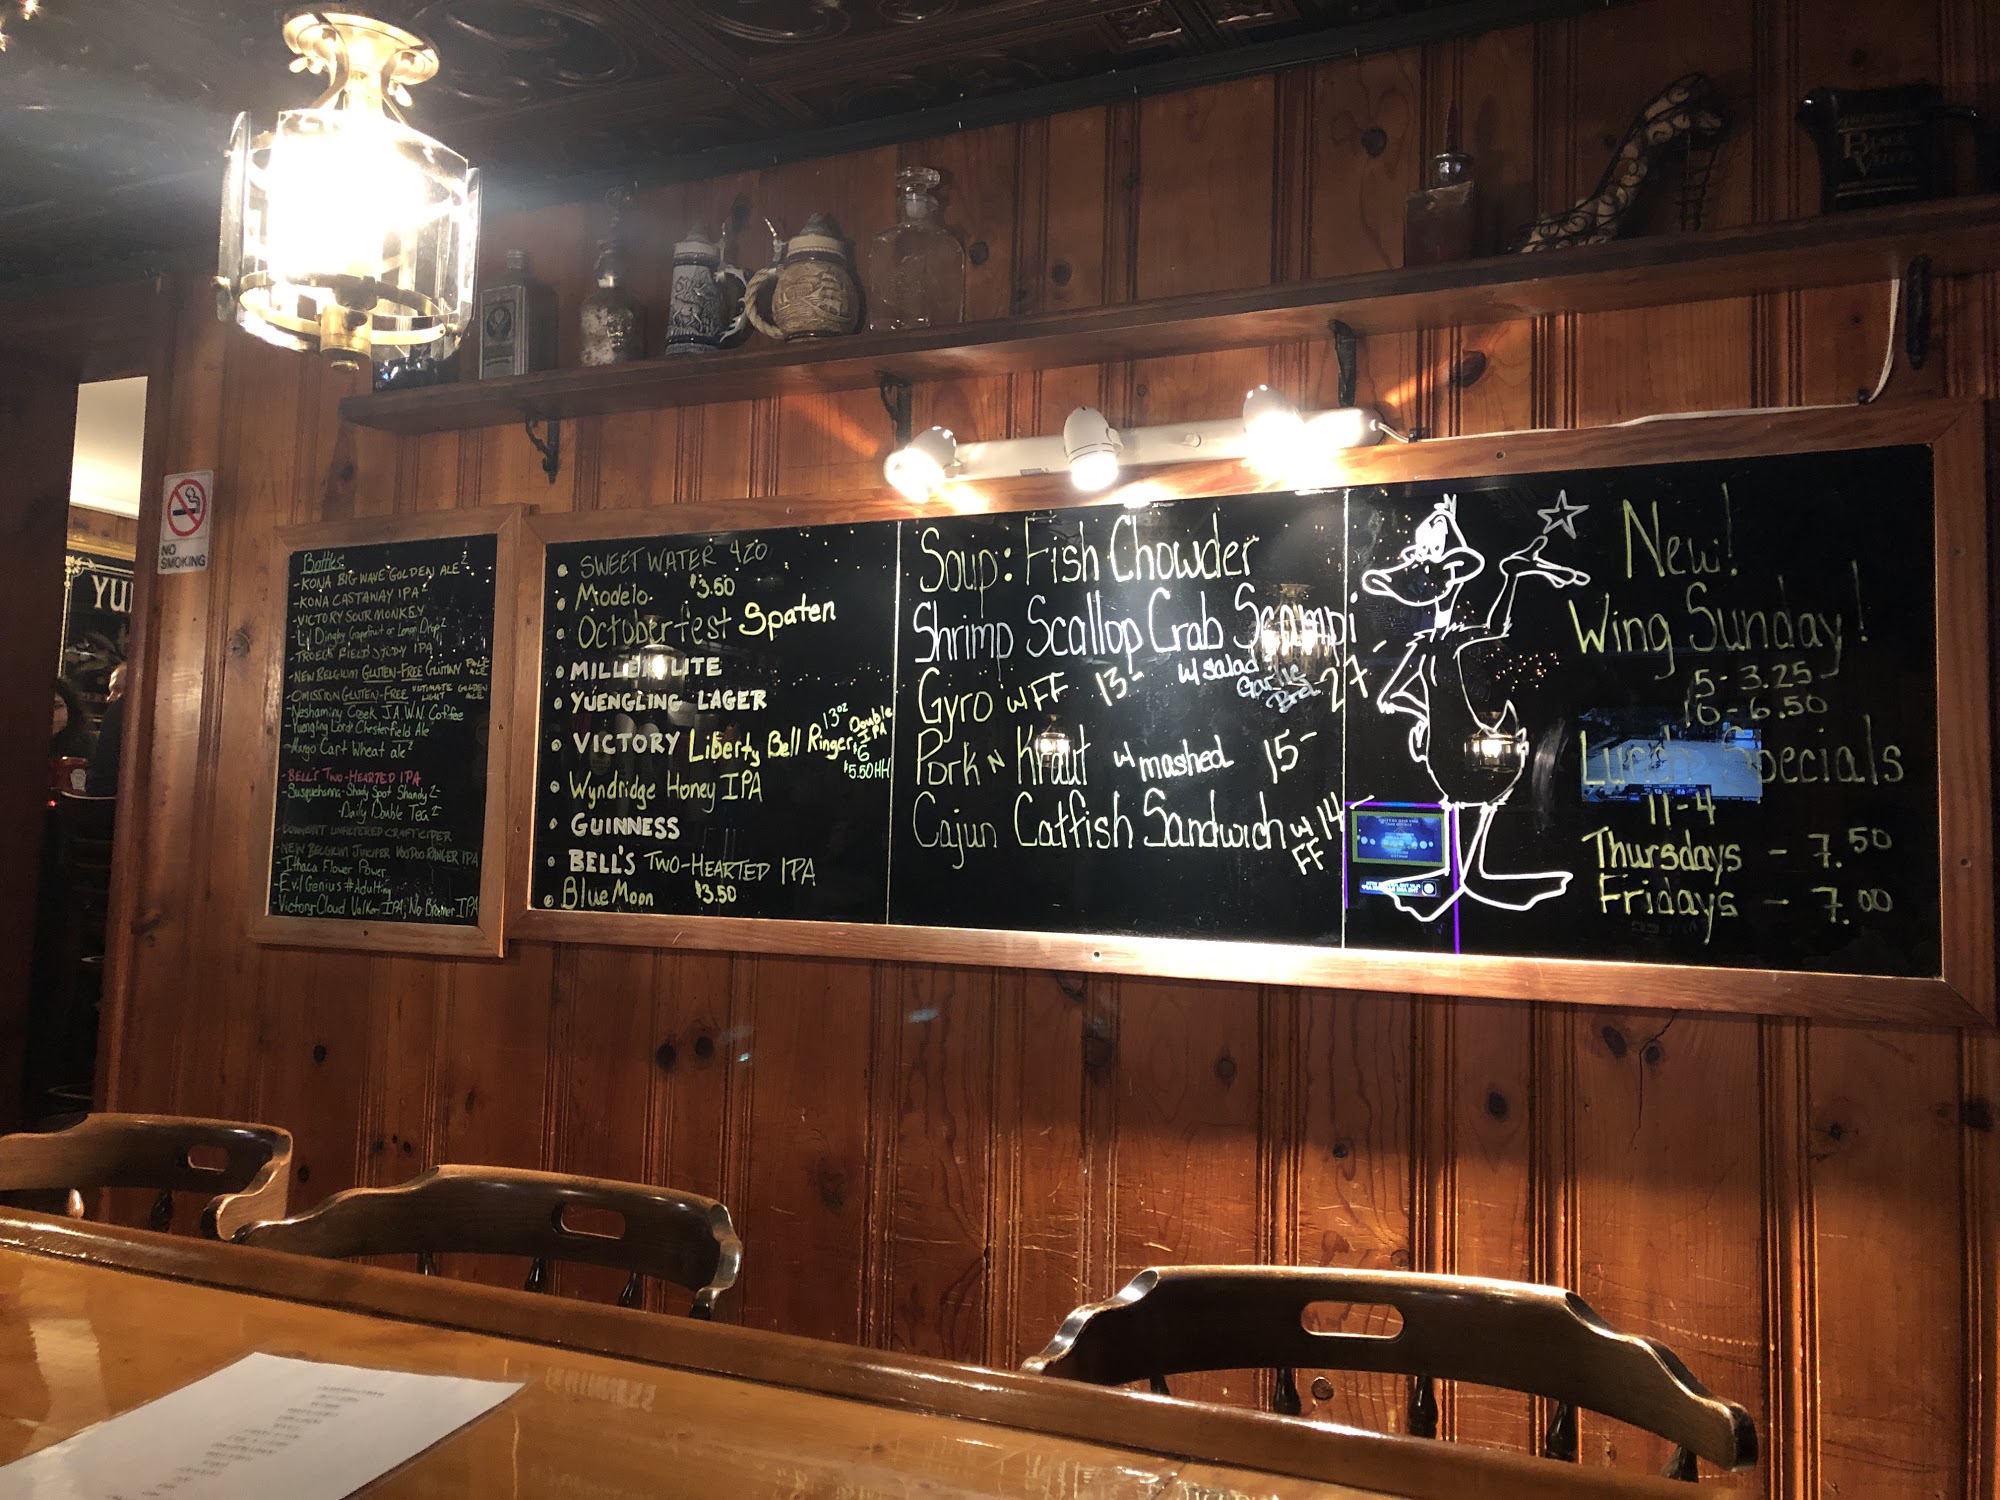 NO
SMOKING
YU
Bottles
- KONA BIG WAVE GOLDEN ALE 2
- KONA CASTAWAY IPA 2
- VICTORY SOUR MONKEY
- Lil Dinghy Grapefruit or Lemon Drop 2
- TROEGS FIELD STUDY IPA
- NEW BELGIUM GLUTEN-FREE GLUTINY PALE ALE
- OMISSION GLUTEN-FREE ULTIMATE LIGHT GOLDEN ALE
- Neshaminy Creek J.A.W.N. Coffee
- Yuengling Lord Chesterfield Ale
- Mango Cart Wheat ale 2
- BELL'S TWO-HEARTED IPA
- Susquehanna - Shady Spot Shandy 2 -
- Daily Double Tea 2
- DOWNEAST UNFILTERED CRAFT CIDER
- NEW BELGIUM JUICIFER VOODOO RANGER IPA
- Ithaca Flower Power
- Evil Genius #Adulting
- Victory-Cloud Walker IPA, No Brainer IPA
SWEET WATER 420
Modelo $3.50
Octoberfest Spaten
MILLER LITE
YUENGLING LAGER
VICTORY Liberty Bell Ringer 13oz Double IPA $6 $5.50 HH
Wyndridge Honey IPA
GUINNESS
BELL'S TWO-HEARTED IPA
Blue Moon $3.50
Soup: Fish Chowder
Shrimp Scallop Crab Scampi
w/ salad Garlic Brd. 27-
Gyro w FF 13-
Pork N Kraut w mashed 15-
Cajun Catfish Sandwich w FF 14-
New!
Wing Sunday!
5 - 3.25
10 - 6.50
Lunch Specials
11-4
Thursdays - 7.50
Fridays - 7.00